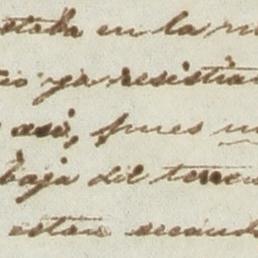 estaba en la m
tio ya resistía
asi, pues u
baja del terren
están secand